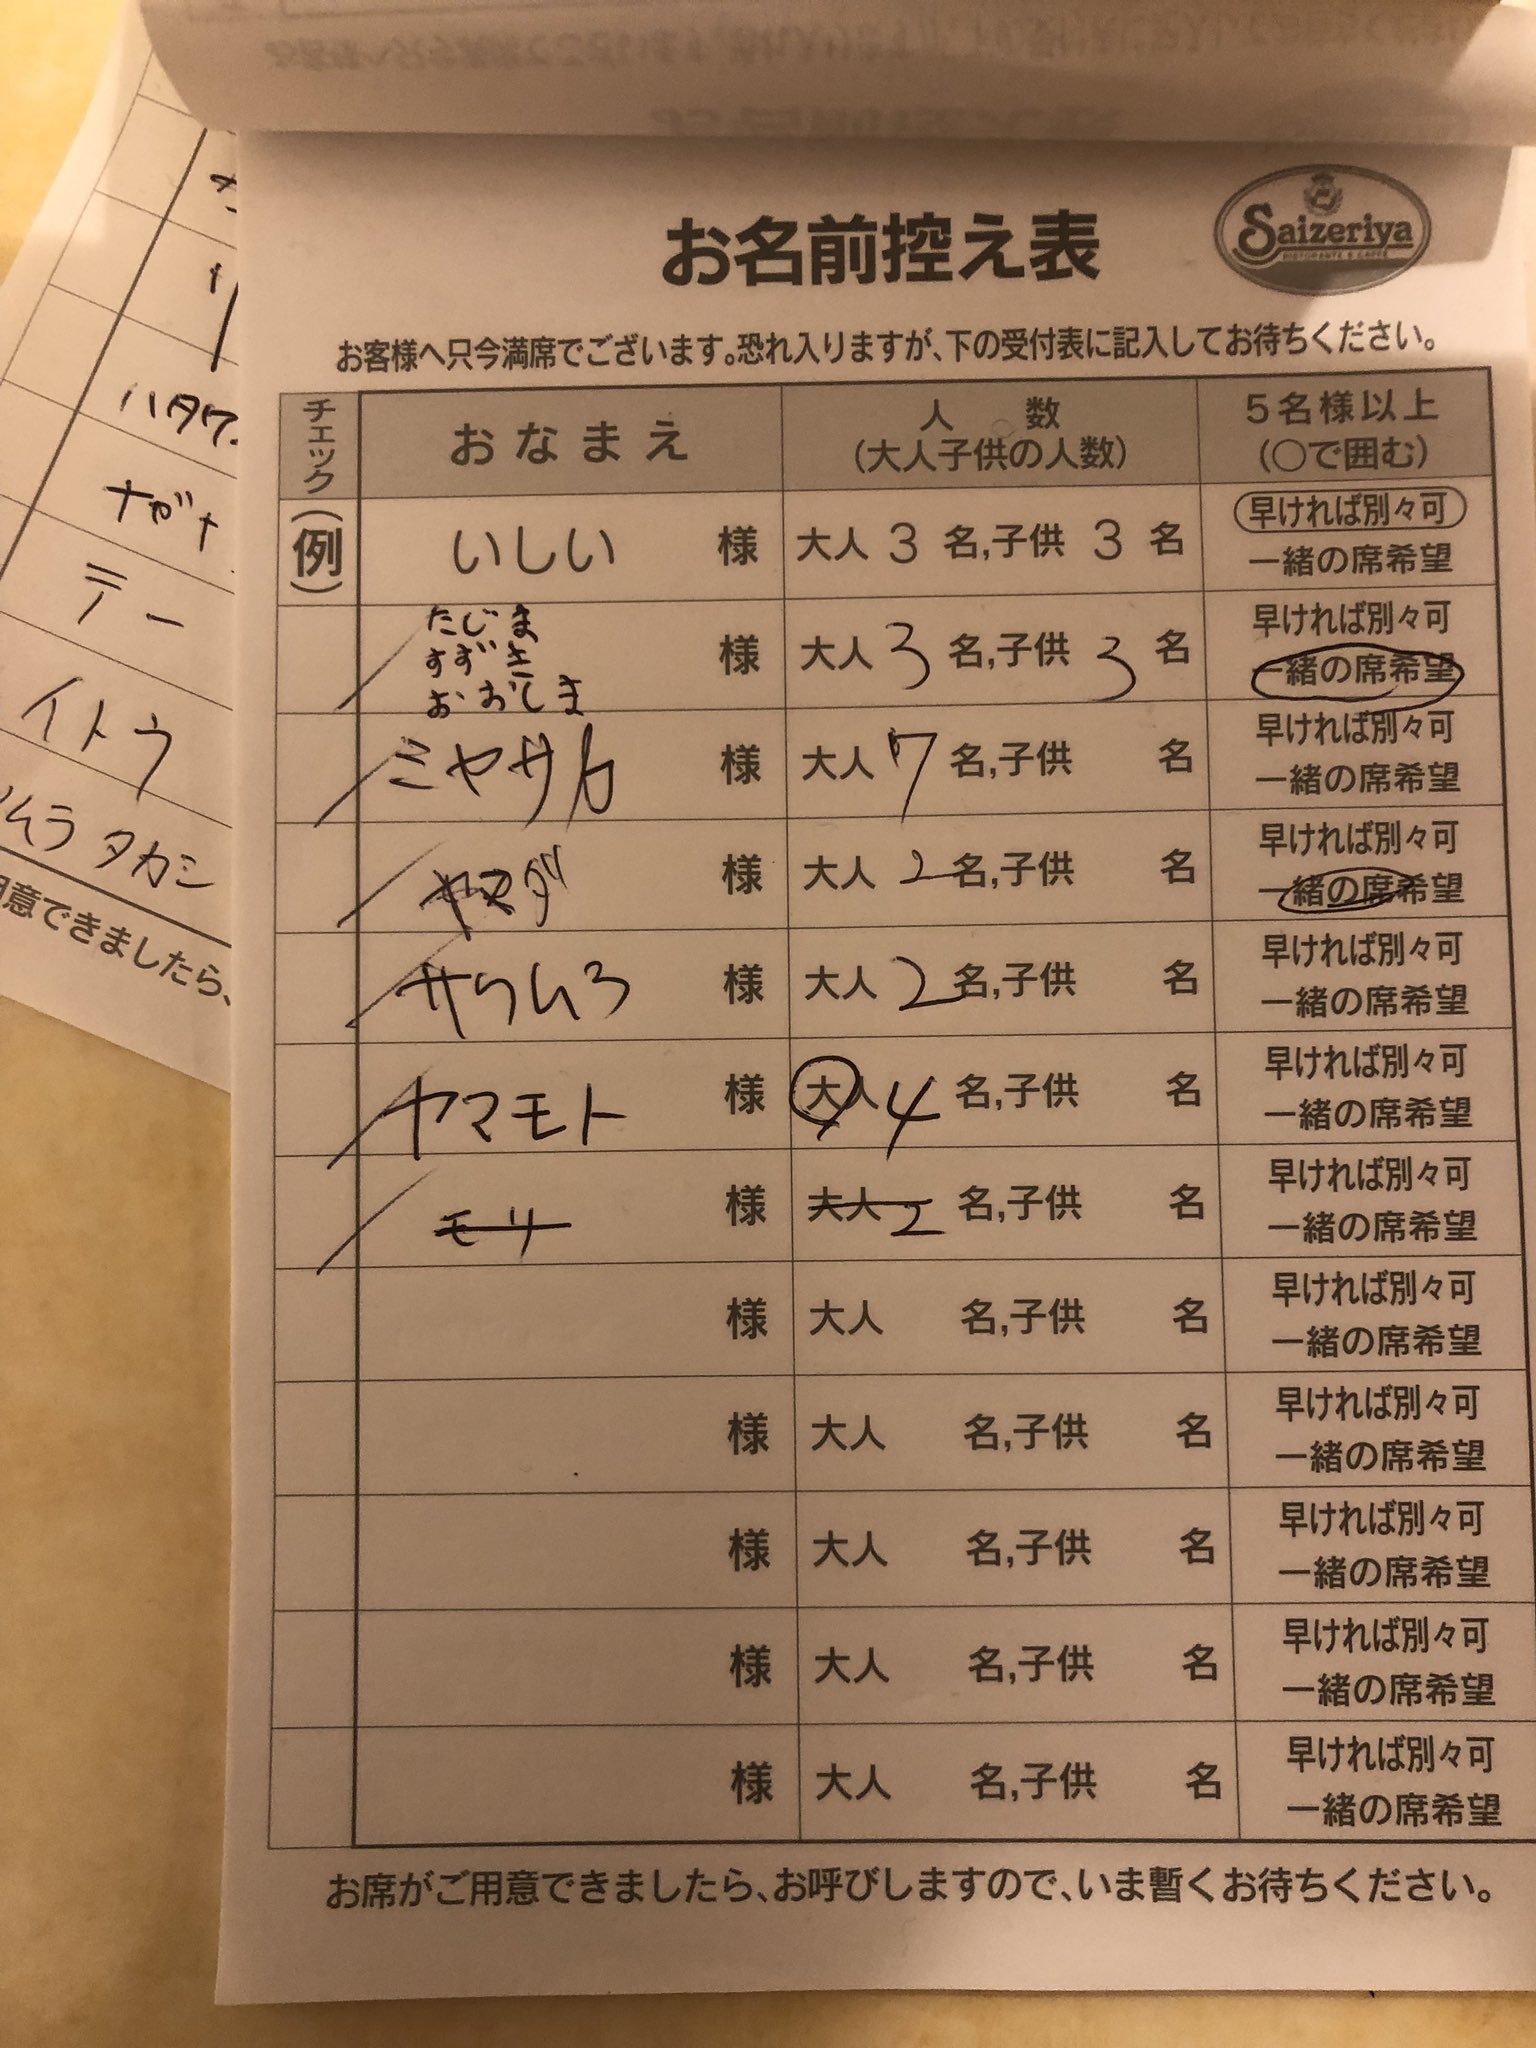 お名前控え表
Saizeriya
RISTORANTE & CAFFÈ
お客様へ只今満席でございます。恐れ入りますが、下の受付表に記入してお待ちください。
チェック おなまえ 人数 (大人子供の人数) 5名様以上 (○で囲む)
(例) いしい 様 大人 3 名,子供 3 名 早ければ別々可
一緒の席希望
たじま
すずき
おおしま
様 大人 3 名,子供 3 名 早ければ別々可
一緒の席希望
ミヤサカ 様 大人 7 名,子供 名 早ければ別々可
一緒の席希望
ヤマダ 様 大人 2 名,子供 名 早ければ別々可
一緒の席希望
サワムラ 様 大人 2 名,子供 名 早ければ別々可
一緒の席希望
ヤマモト 様 大人 4 名,子供 名 早ければ別々可
一緒の席希望
モリ 様 大人 2 名,子供 名 早ければ別々可
一緒の席希望
様 大人 名,子供 名 早ければ別々可
一緒の席希望
様 大人 名,子供 名 早ければ別々可
一緒の席希望
様 大人 名,子供 名 早ければ別々可
一緒の席希望
様 大人 名,子供 名 早ければ別々可
一緒の席希望
様 大人 名,子供 名 早ければ別々可
一緒の席希望
お席がご用意できましたら、お呼びしますので、いま暫くお待ちください。
ハタケ
ナガナ
テー
イトウ
ムラ タカシ
用意できましたら、